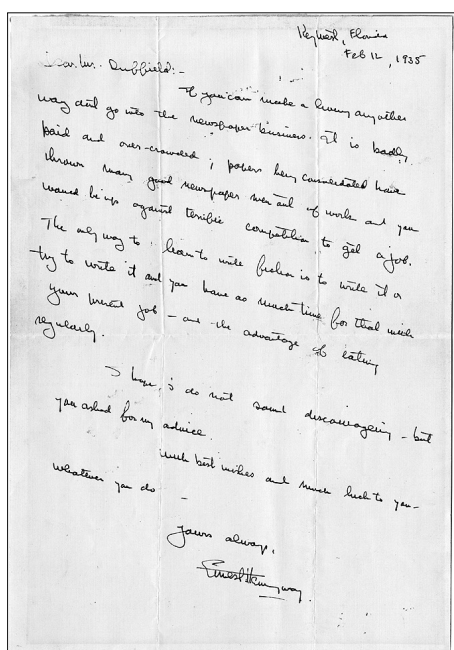 Key West, Florida
Feb 12, 1935
Dear Mr. Duffield:-
If you can make a living any other
way dont go into the newspaper business. It is badly
paid and over-crowded; papers being consolidated have
thrown many good newspaper men out of work and you
would be up against terrific competition to get a job.
The only way to learn to write fiction is to write it or
try to write it and you have as much time for that with
your present job - and the advantage of eating
regularly.
I hope I do not sound discouraging - but
you asked for my advice.
With best wishes and much luck to you -
whatever you do -
Yours always,
Ernest Hemingway.